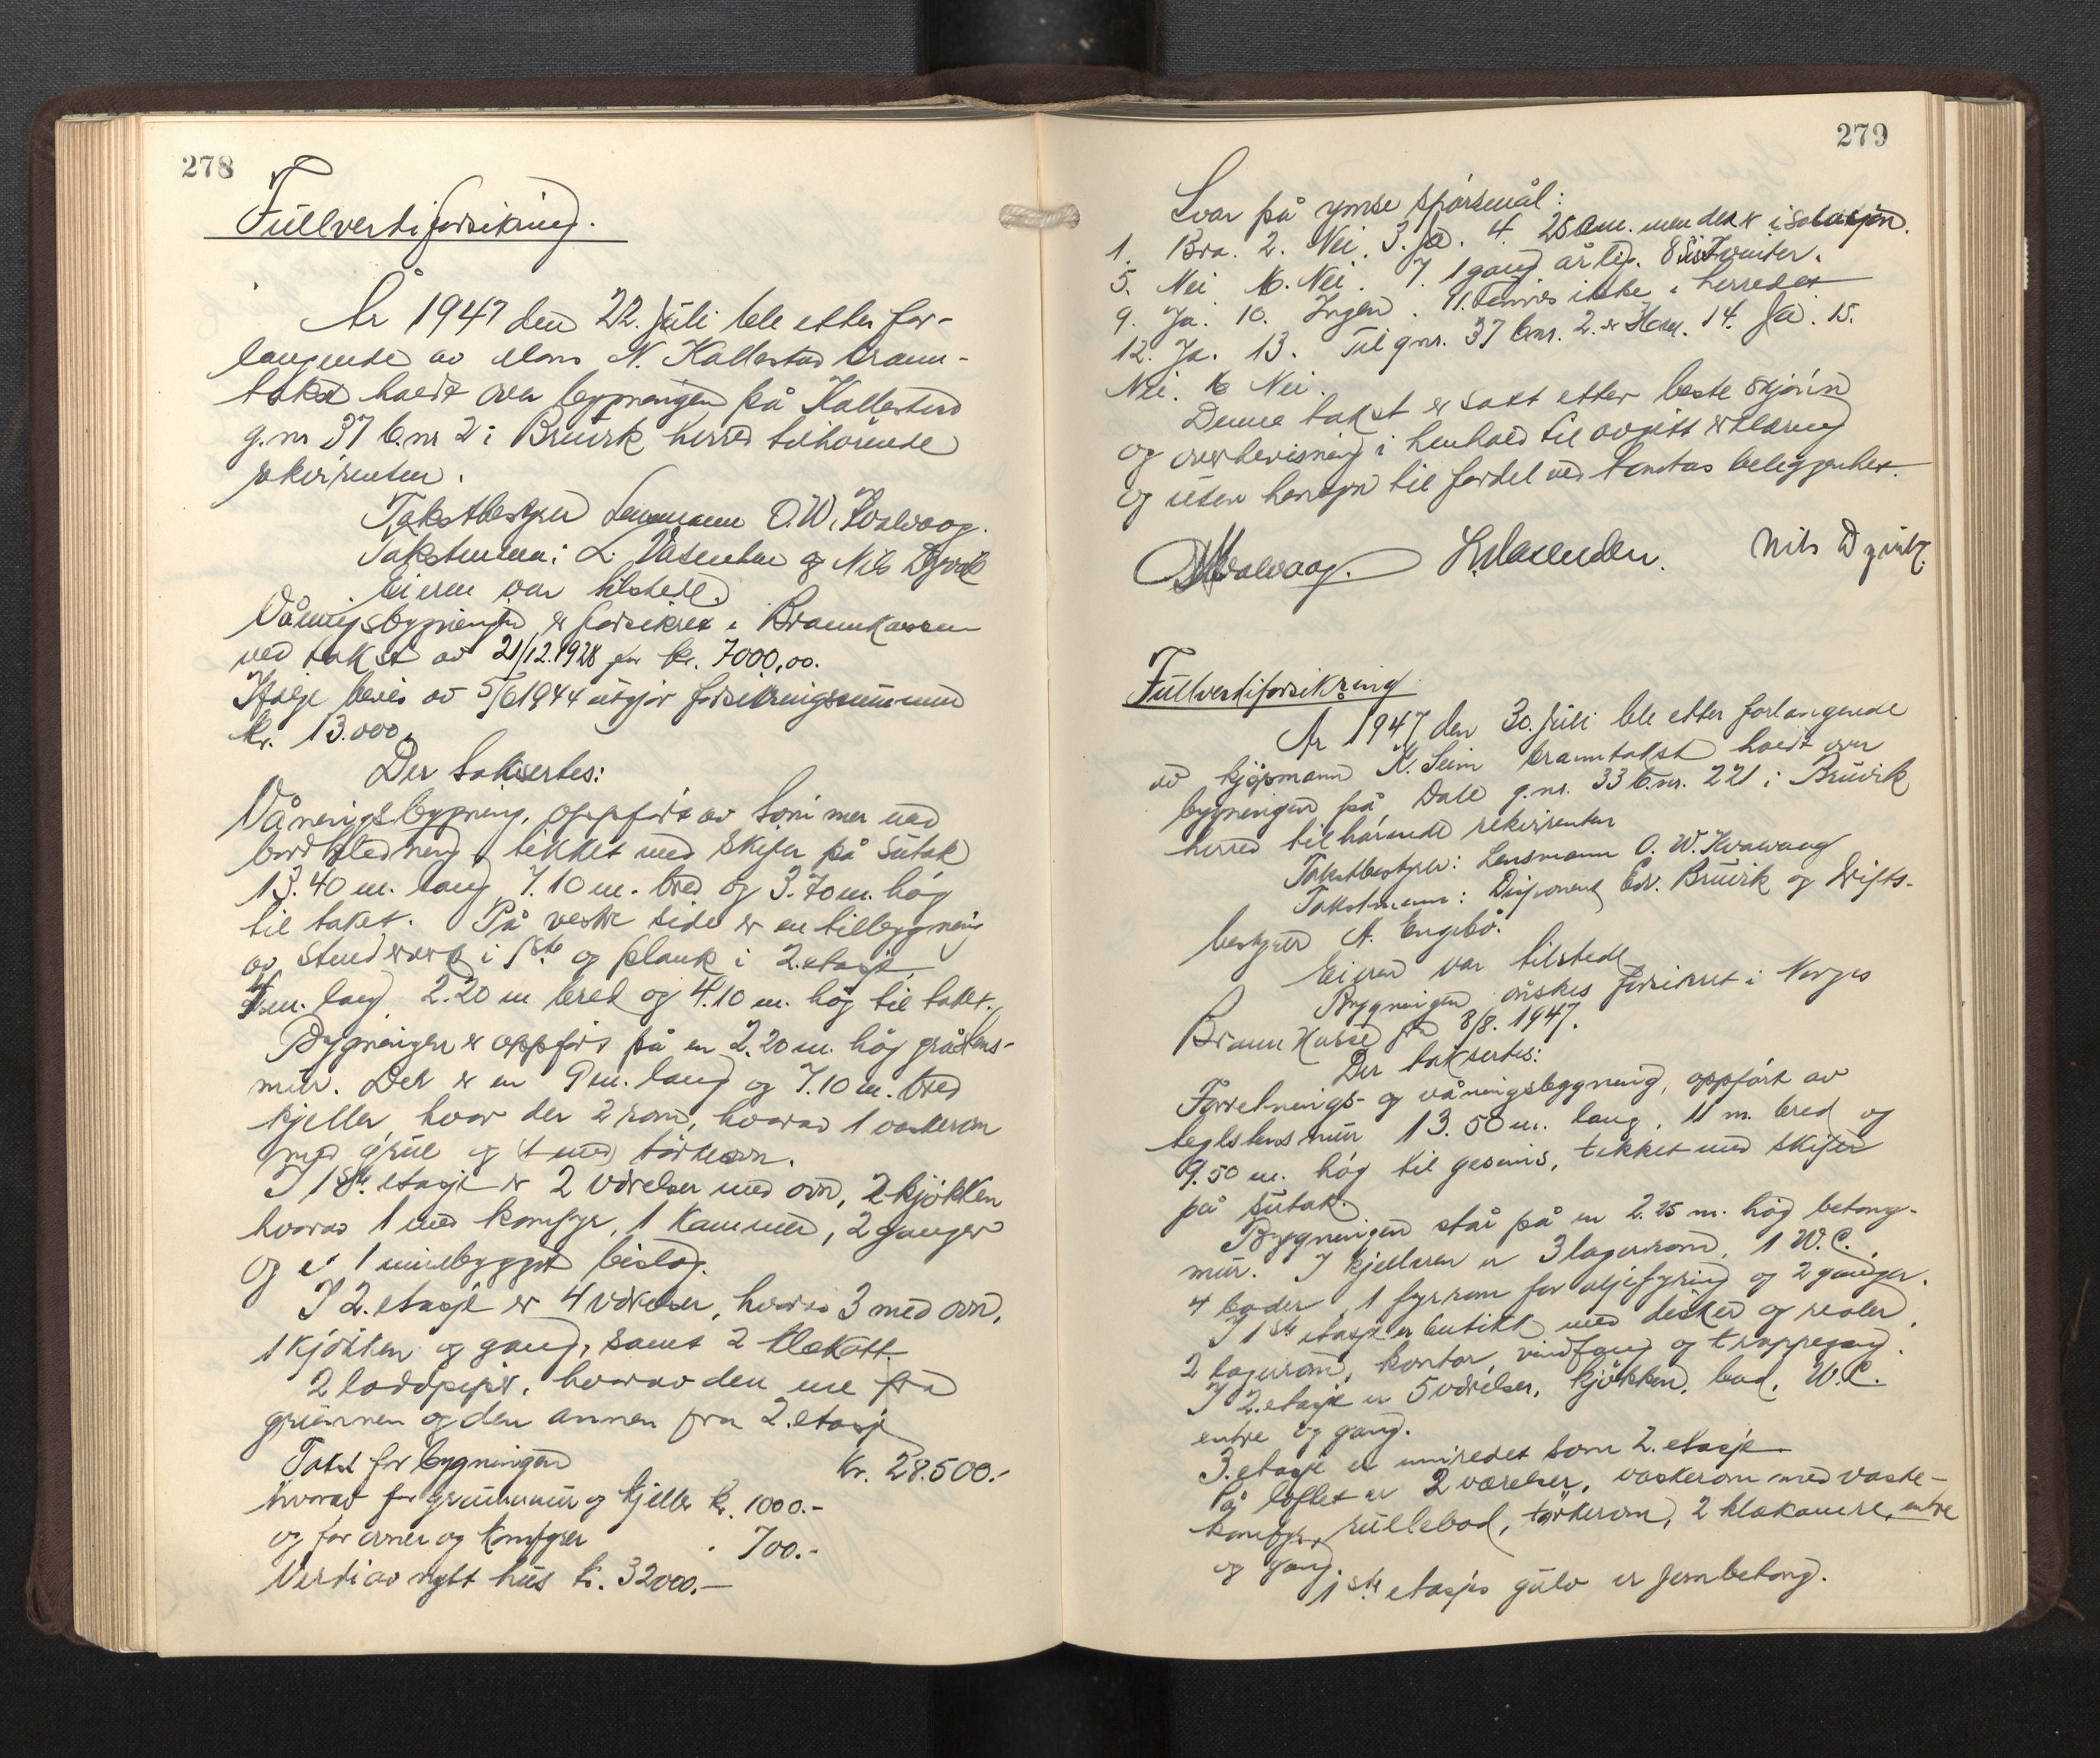 278
Fullverdiforsikring.
År 1947 den 22. juli ble etter for-
langende av Mons N. Kallestad brann-
takst holdt over bygningen på Kallestad
g.nr 37 b.nr 2 i Bruvik herred tilhörende
rekvirenten.
Takstbestyrer Lensmann O.W. Kvalvaag.
Takstmenn: L. Vasenden og Nils Dyvik
Eieren var tilstede.
Våningsbygningen er forsikret i Brannkassen
ved takst av 21/12.1928 for kr. 7000,00.
Ifölje bevis av 5/6 1944 utgjör forsikringssummen
kr. 13.000,
Der taksertes:
Våningsbygning, oppfört av tömmer med
bordkledning, tekket med skifer på sutak
13.40 m. lang 7.10 m. bred og 3.70 m. hög
til taket. På vestre side er en tilbygning
av stenderverk i 1ste og plank i 2. etasje
4 m. lang, 2.20 m bred og 4.10 m. hög til taket.
Bygningen er oppfört på en 2.20 m. hög gråstens-
mur. Det er en 9 m. lang og 7.10 m. bred
kjeller, hvor der 2 rom, hvorav 1 vaskerom
med grue og 1 med törkeovn.
I 1ste etasje er 2 værelser med ovn, 2 kjökken
hvorav 1 med komfyr, 1 kammer, 2 ganger
og 1 innebygget bislag.
I 2. etasje er 4 værelser, hvorav 3 med ovn,
1 kjökken og gang, samt 2 klekott.
2 loddpiper, hvorav den ene fra
grunnen og den annen fra 2. etasje
Takst for bygningen kr. 28.500.-
hvorav for grunnmur og kjeller kr. 1000.-
og for ovner og komfyrer " 700.-
Verdi av nytt hus kr. 32000.-
279
Svar på ymse spörsmål:
1. Bra. 2. Nei. 3. Ja. 4. 25 cm. men dekk isolasjon.
5. Nei 6. Nei. 7. 1 gang årlig. 8 Sist vinter.
9. Ja. 10. Ingen. 11. Finnes ikke i herredet
12. Ja. 13. Til gnr. 37 bnr. 2. 14. Ja. 15.
Nei. 16 Nei.
Denne takst er satt etter beste skjönn
og overbevisning i henhold til avgitt erklæring
og uten hensyn til fordel ved tomtas beleggenhet.
OWKvalvaag. L. Vasenden. Nils Dyvik.
Fullverdiforsikring
År 1947 den 30. juli ble etter forlangende
av kjöpmann K. Seim branntakst holdt over
bygningen på Dale g.nr. 33 b.nr. 221 i Bruvik
herred tilhörende rekvirenten
Takstbestyrer: Lensmann O. W. Kvalvaag
Takstmenn: Disponent Edv. Bruvik og drifts-
bestyrer A. Engebö.
Eieren var tilstede
Bygningen önskes forsikret i Norges
Brann Kasse fra 8/8. 1947.
Der taksertes:
Forretnings- og våningsbygning, oppfört av
teglstensmur 13.50 m. lang, 11 m. bred og
9.50 m. hög til gesims, tekket med skifer
på sutak.
Bygningen står på en 2.25 m. hög betong-
mur. I kjelleren er 3 lagerrom, 1 W.C.,
4 boder, 1 fyrrom for oljefyring og 2 ganger.
I 1ste etasje er butikk med disker og reoler,
2 lagerrom, kontor, vindfang og trappegang.
I 2. etasje er 5 værelser, kjökken, bad, W.C.
entre og gang.
3. etasje er innredet som 2. etasje
På loftet er 2 værelser, vaskerom med vaske-
komfyr, rullebod, törkerom, 2 klekamre, entre
og gang.
1ste etasjes gulv er jernbetong.